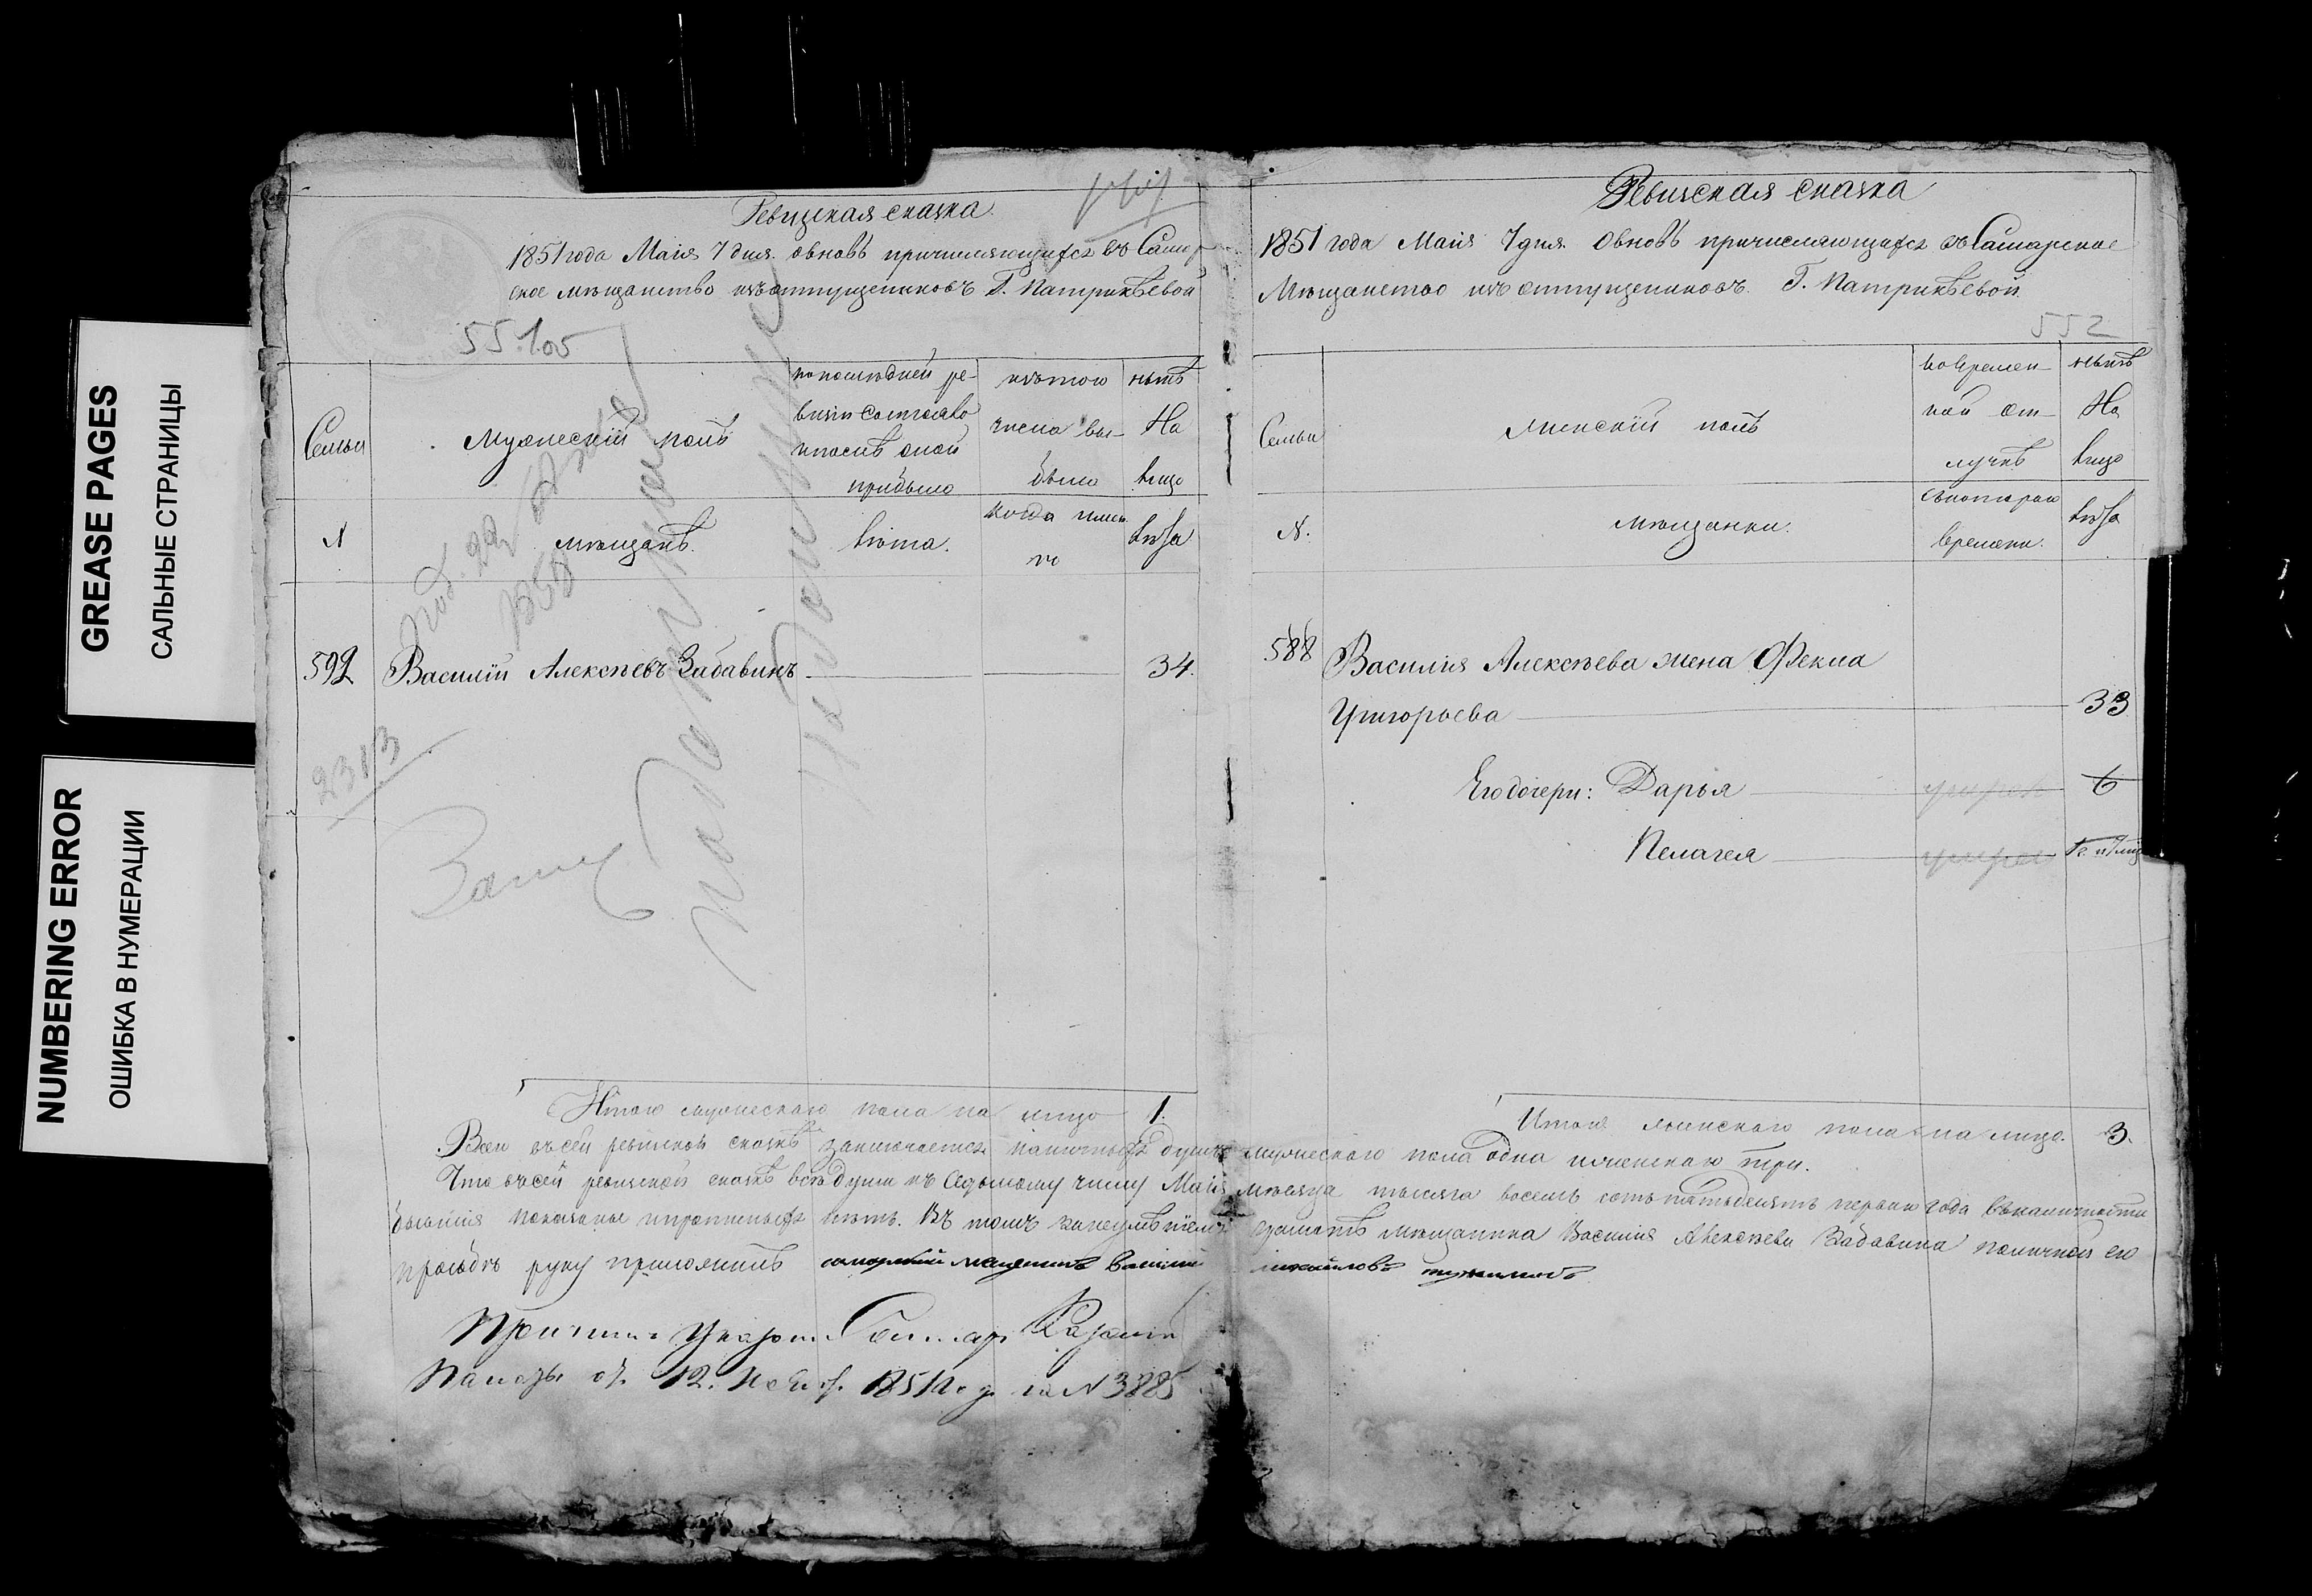 GREASE PAGES
САЛЬНЫЕ СТРАНИЦЫ
NUMBERING ERROR
ОШИБКА В НУМЕРАЦИИ
Ревизская сказка.
1851 года Маія 7 дня. овновь причисляющихся въ Самар
ское мѣщанство изъ отпущениковъ Г. Патрикѣевой
551.об
Семьи
Мужескій полъ
по послѣдней ре-
визіи состояло
и послѣ оной
прибыло
изъ того
числа вы-
было
нынѣ
На
лицо
N
мѣщанѣ.
лѣта.
когда имен
но
лѣта
592
Василій Алексѣевъ Забавинъ
34.
2313
Итого мужескаго пола на лицо 1.
Ревизская сказка
1851 года Маія 7 дня. Овновь причисляющихся въ Самарское
Мѣщанство изъ отпущениковъ. Г. Патрикѣевой.
552
Семьи
женскій полъ
во времен-
ной от-
лучкѣ
нынѣ
На
лицо
N.
мѣщанки.
съ котораго
времени.
лѣта
588
Василія Алексѣева жена Фекла
Григорьева
33
Его дочери: Дарья
6
Пелагея
Итого женскаго пола на лицо. 3.
Всего въ сей ревизской сказкѣ заключается наличныхъ душъ мужескаго пола одна и женскаго три.
Что въ сей ревизской сказкѣ всѣ души къ седьмому числу Маія мѣсяца тысяча восемь сотъ пятьдесятъ перваго года въ наличности
бывшія показаны и пропитныхъ нѣтъ. Въ томъ за неумѣніемъ грамотѣ мѣщанина Василія Алексѣева Забавина по личной его
прозьбѣ руку приложилъ самарскій мещенинъ василий михайловъ
Палаты от. 12. Нояб. 1851 год за N 3885